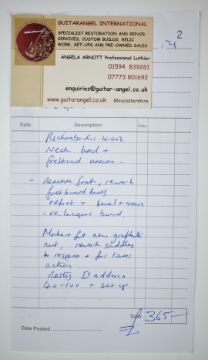 GUITARANGEL INTERNATIONAL
SPECIALIST RESTORATION AND REPAIR
SERVICES, CUSTOM BUILDS, RELIC
WORK, SET-UPS AND PRE-OWNED SALES
ANGELA ARNOTT Professional Luthier
01594 839261
07773 801692
enquiries@guitar-angel.co.uk
www.guitarangel.co.uk Gloucestershire
2
Date
Description
Rickenbacker 4003
Neck bowed +
fretboard uneven -
- Remove frets, rework
fretboard
refret + level + crown
- re lacquer board.
Make + fit new graphite
nut, rework saddles
to respace + for lower
action
Restring D'addario
40-100 + set up
Date Posted
Total
£365